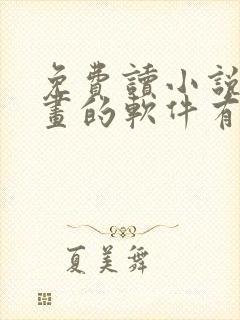 免費讀小説
畫的軟件有
夏美舞